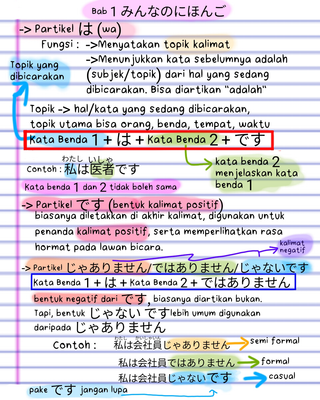 Bab 1 みんなのにほんご
-> Partikel は (wa)
Fungsi : ->Menyatakan topik kalimat
->Menunjukkan kata sebelumnya adalah
Topik yang
dibicarakan
(subjek/topik) dari hal yang sedang
dibicarakan. Bisa diartikan "adalah"
Topik -> hal/kata yang sedang dibicarakan,
topik utama bisa orang, benda, tempat, waktu
Kata Benda 1 + は + Kata Benda 2 + です
Contoh : 私は医者です
わたし いしゃ
kata benda 2
menjelaskan kata
benda 1
Kata benda 1 dan 2 tidak boleh sama
-> Partikel です (bentuk kalimat positif)
biasanya diletakkan di akhir kalimat, digunakan untuk
penanda kalimat positif, serta memperlihatkan rasa
hormat pada lawan bicara.
kalimat
negatif
-> Partikel じゃありません/ではありません/じゃないです
Kata Benda 1 + は + Kata Benda 2 + ではありません
bentuk negatif dari です, biasanya diartikan bukan.
Tapi, bentuk じゃない です lebih umum digunakan
daripada じゃありません
Contoh : 私は会社員じゃありません semi formal
わたし かいしゃいん
私は会社員ではありません formal
私は会社員じゃない です casual
pake です jangan lupa